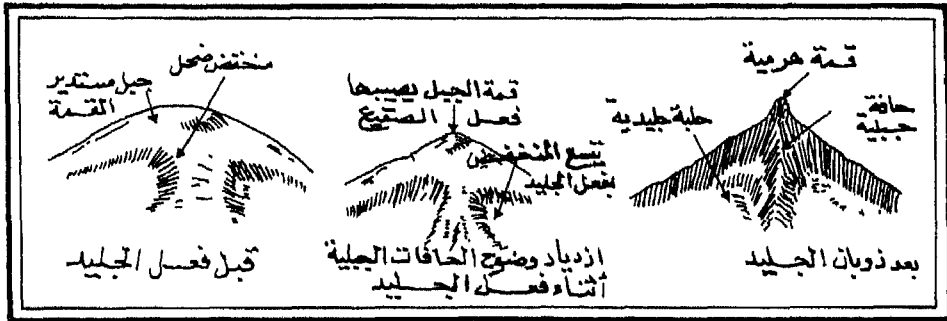 قمة هرمية
حافة
جبلية
حلبة جليدية
بعد ذوبان الجليد
قمة الجبل يصيبها
فعل الصقيع
يتسع المنخفض
بفعل الجليد
ازدياد وضوح الحافات الجبلية
أثناء فعل الجليد
منخفض ضحل
جبل مستدير
القمة
قبل فعل الجليد